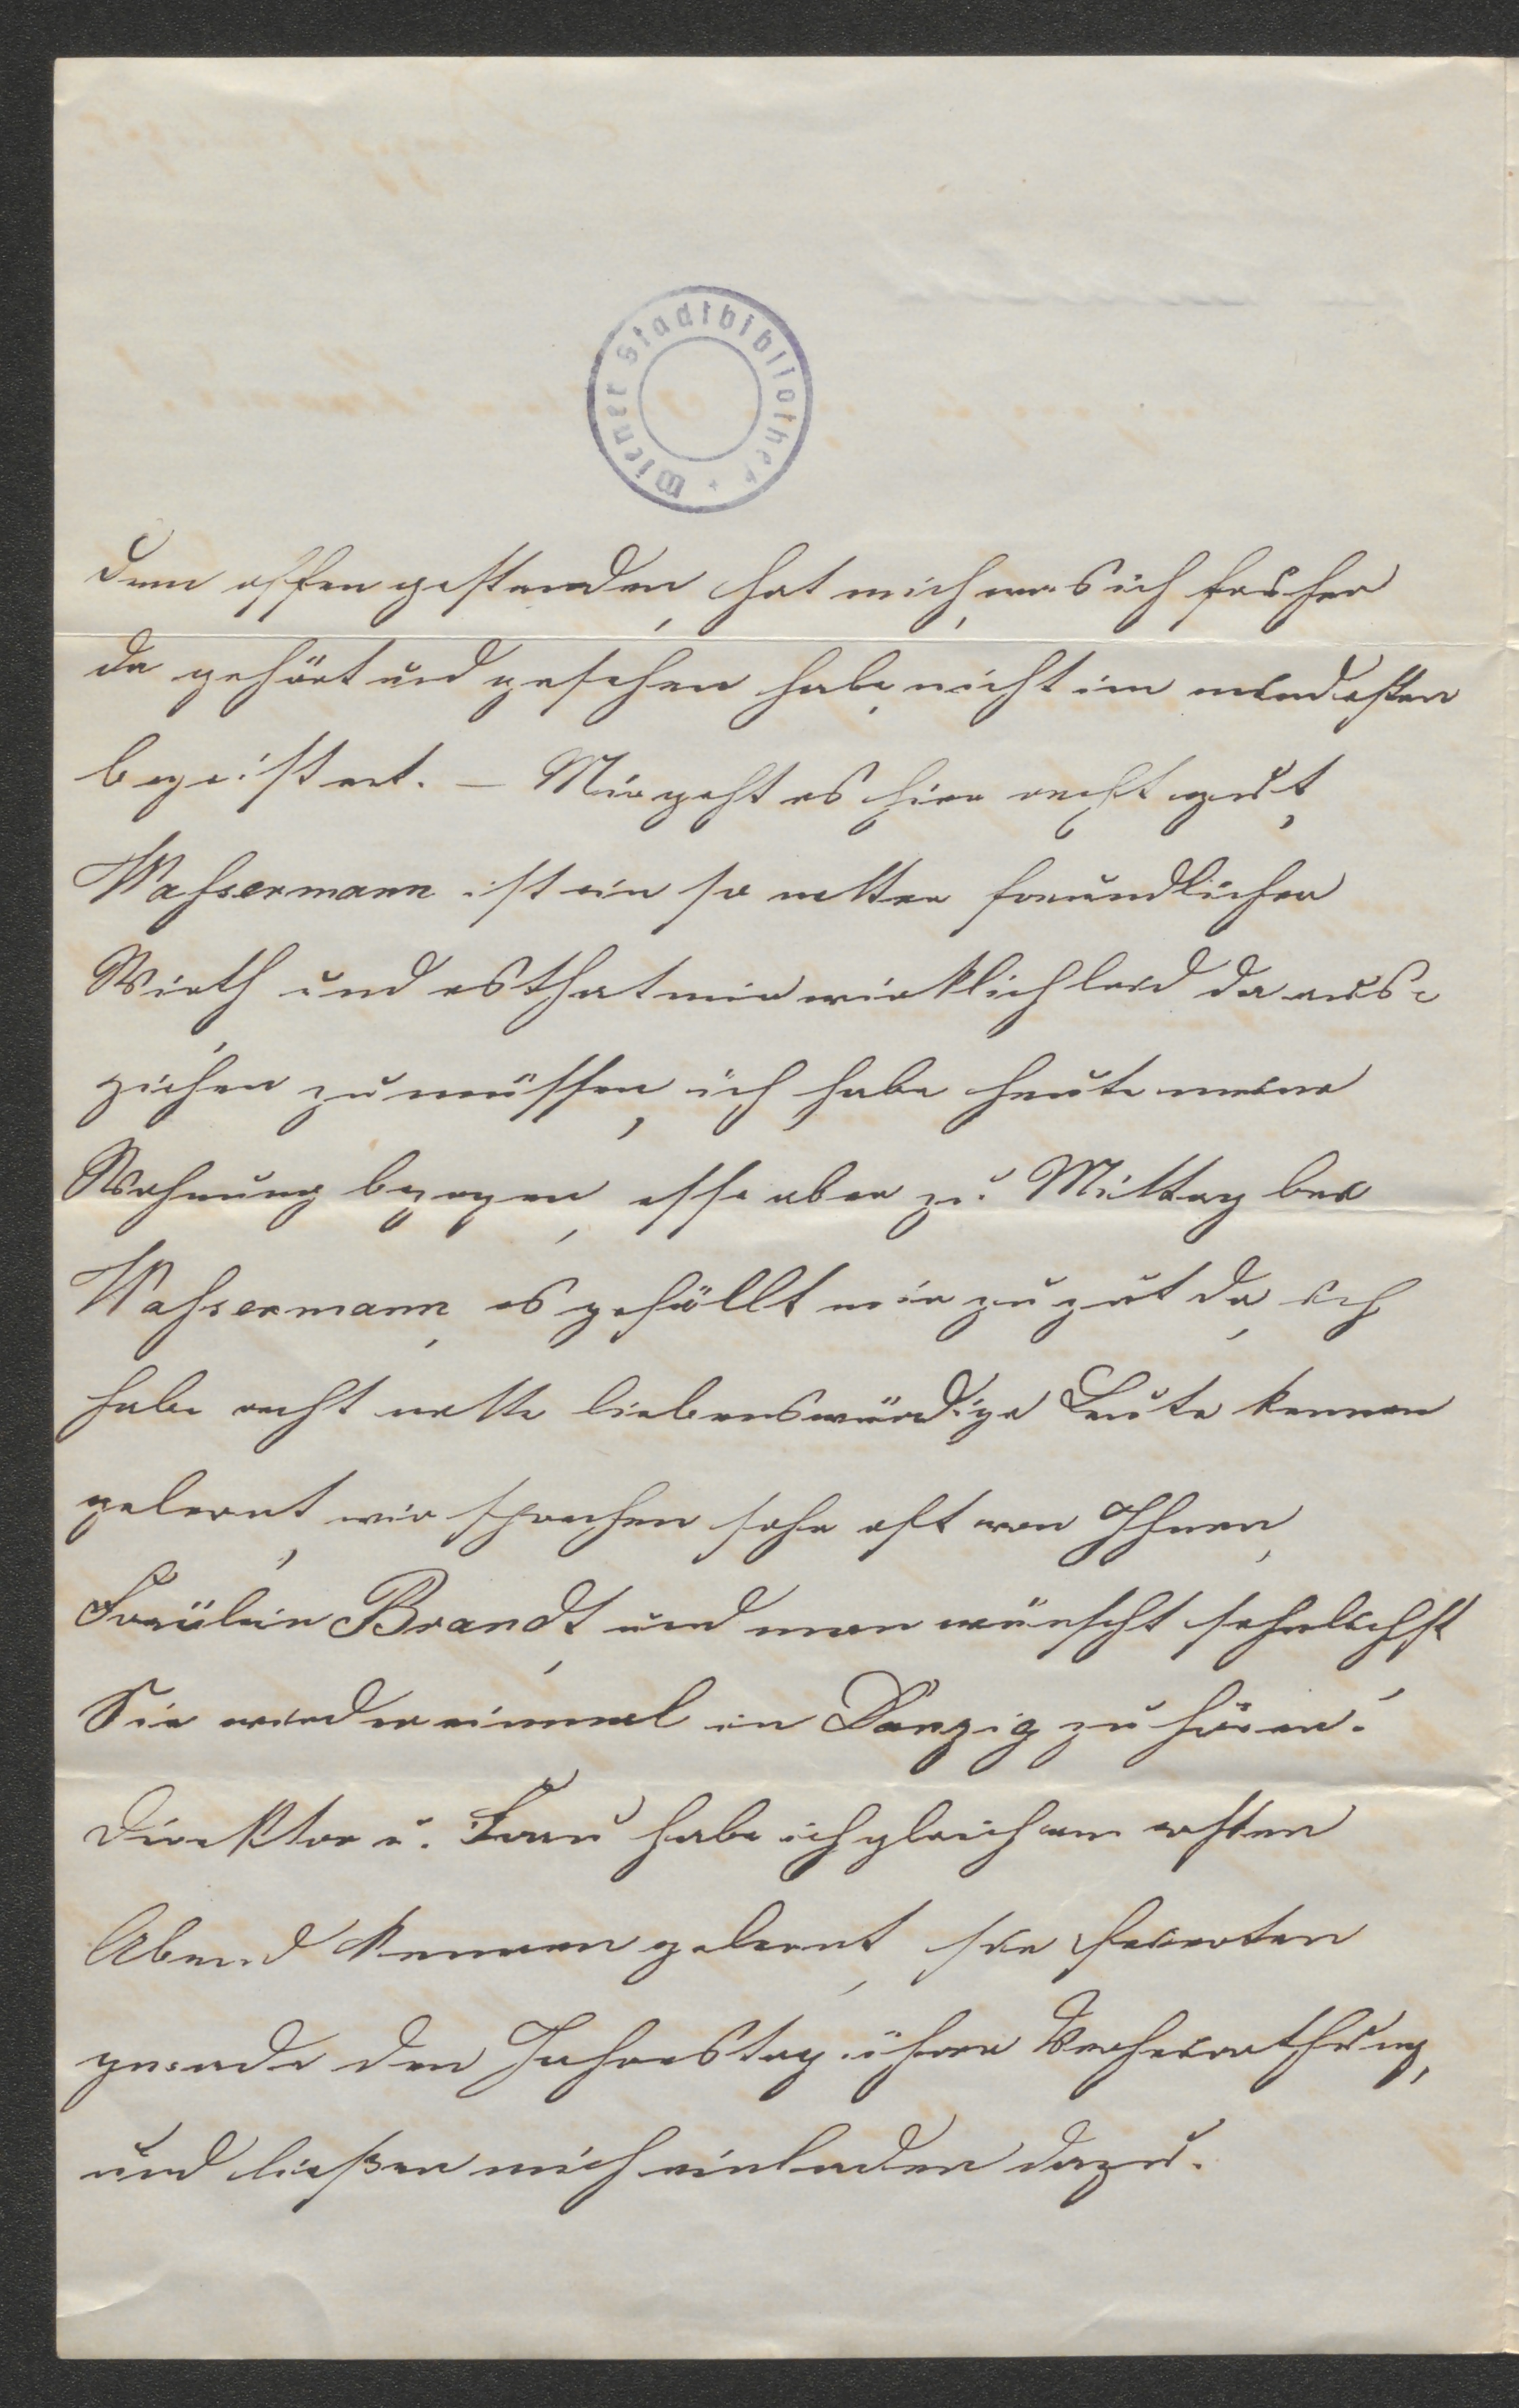 Wiener Stadtbibliothek *
denn offen gestanden, hat mich, was ich fruher
da gehört und gesehen habe, nicht im mindesten
begeistert. – Mir geht es hier recht gut,
Wassermann ist ein so netter freundlicher
Wirth und es that mir wirklich leid da aus-
ziehen zu müssen, ich habe heute meine
Wohnung bezogen, esse aber zu Mittag bei
Wassermann, es gefällt mir zu gut da, ich
habe recht nette liebenswürdige Leute kennen
gelernt, wir sprechen sehr oft von Ihnen,
Fräulein Brandt, und man wünscht sehnlichst
Sie wieder einmal in Danzig zu hören!
Direktor u. Frau habe ich gleich am ersten
Abend kennen gelernt, sie feierten
gerade den Jahrestag ihrer Verheirathung,
und ließen mich einladen dazu.